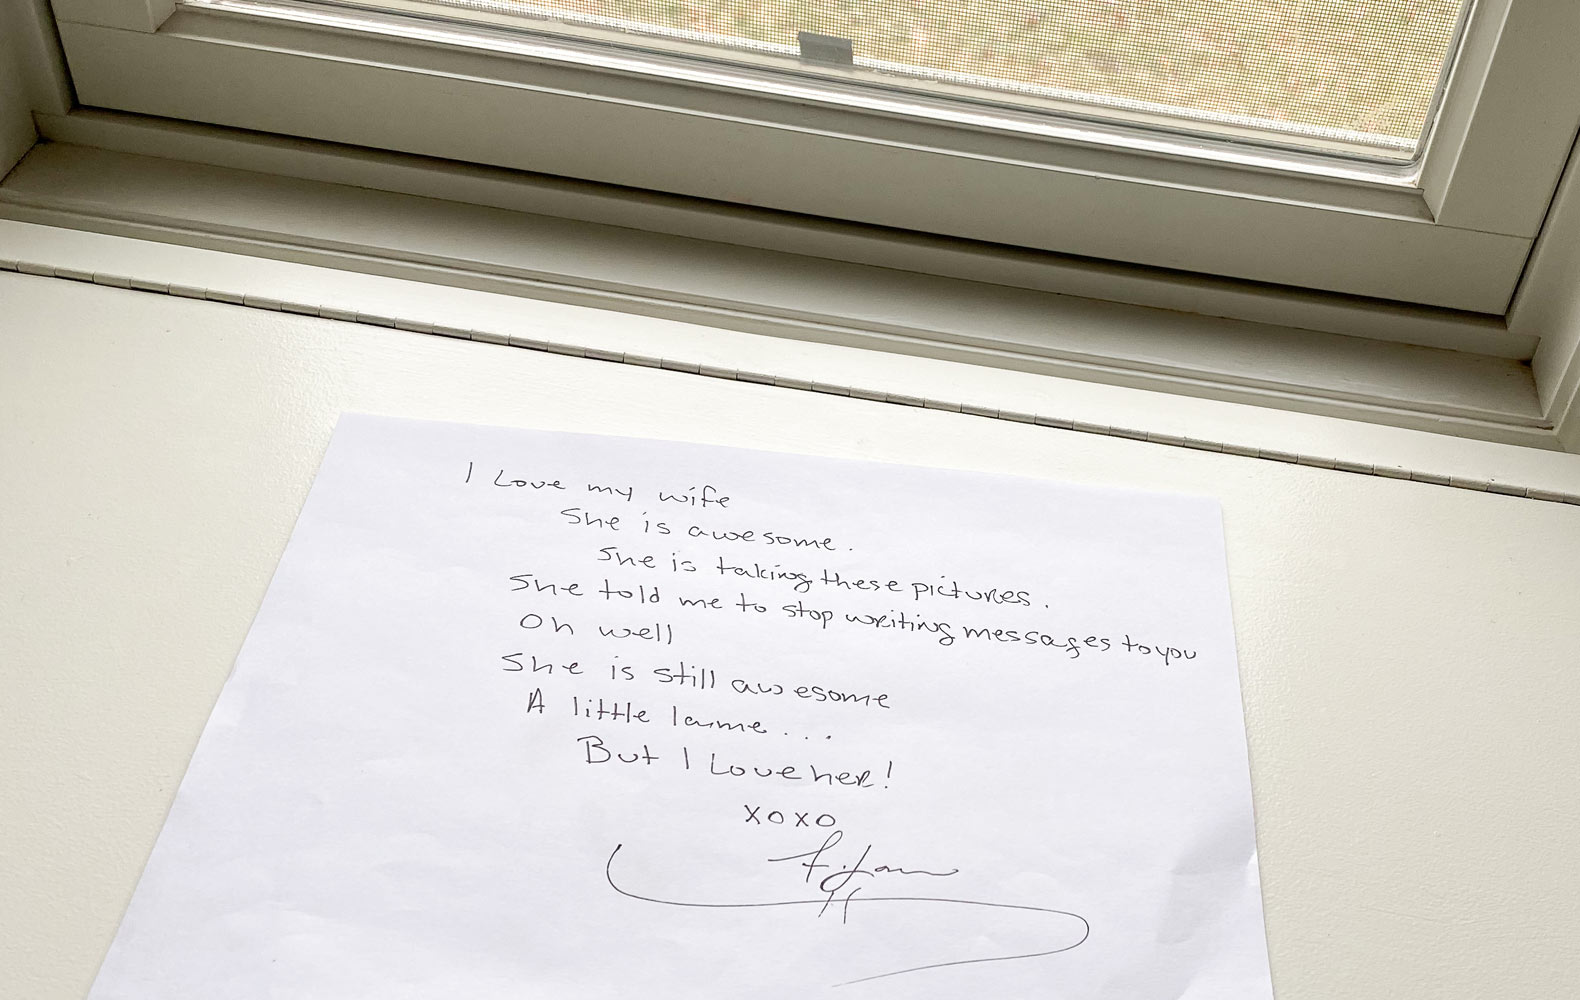 I Love my wife
She is awesome.
She is taking these pictures.
She told me to stop writing messages to you
Oh well
She is still awesome
A little lame...
But I Love her!
xoxo